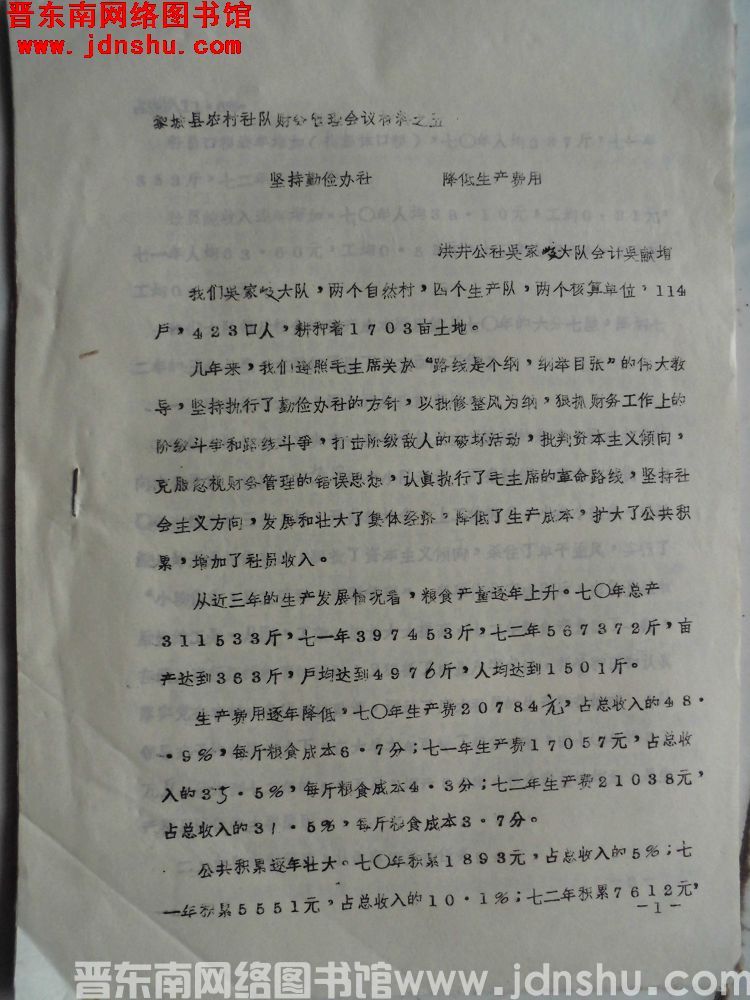 晋东南网络图书馆
www.jdnshu.com
黎城县农村社队财务管理会议材料之五
坚持勤俭办社 降低生产费用
洪井公社吴家峧大队会计吴献堉
我们吴家峧大队，两个自然村，四个生产队，两个核算单位，114
户，423口人，耕种着1703亩土地。
几年来，我们遵照毛主席关於“路线是个纲，纲举目张”的伟大教
导，坚持执行了勤俭办社的方针，以批修整风为纲，狠抓财务工作上的
阶级斗争和路线斗争，打击阶级敌人的破坏活动，批判资本主义倾向，
克服忽视财务管理的错误思想，认真执行了毛主席的革命路线，坚持社
会主义方向，发展和壮大了集体经济，降低了生产成本，扩大了公共积
累，增加了社员收入。
从近三年的生产发展情况看，粮食产量逐年上升。七〇年总产
311533斤，七一年397453斤，七二年567372斤，亩
产达到363斤，户均达到4976斤，人均达到1501斤。
生产费用逐年降低，七〇年生产费20784元，占总收入的48·
·9%，每斤粮食成本6·7分；七一年生产费17057元，占总收
入的35·5%，每斤粮食成本4·3分；七二年生产费21038元，
占总收入的31·5%，每斤粮食成本3·7分。
公共积累逐年壮大。七〇年积累1893元，占总收入的5%；七
一年积累5551元，占总收入的10·1%；七二年积累7612元，
-1-
晋东南网络图书馆www.jdnshu.com